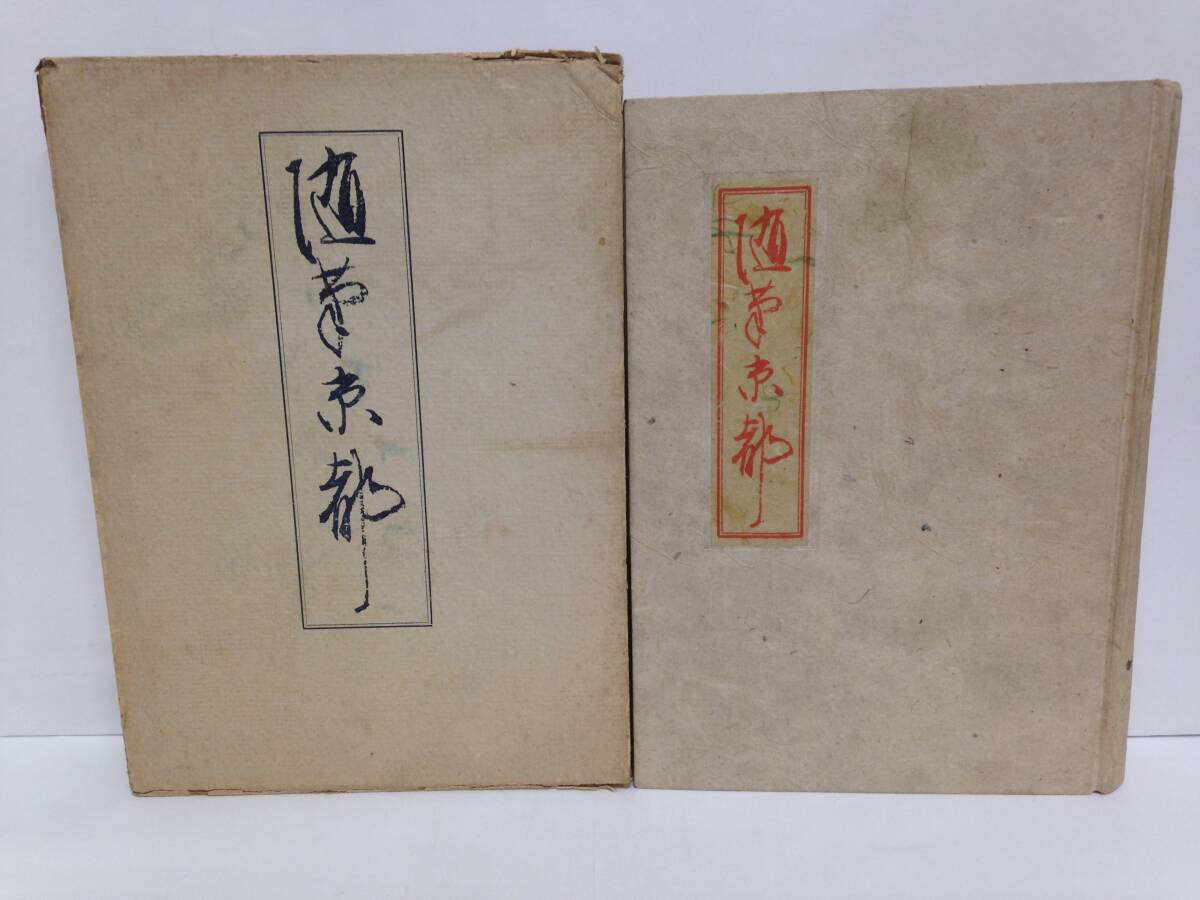 随筆京都
随筆京都